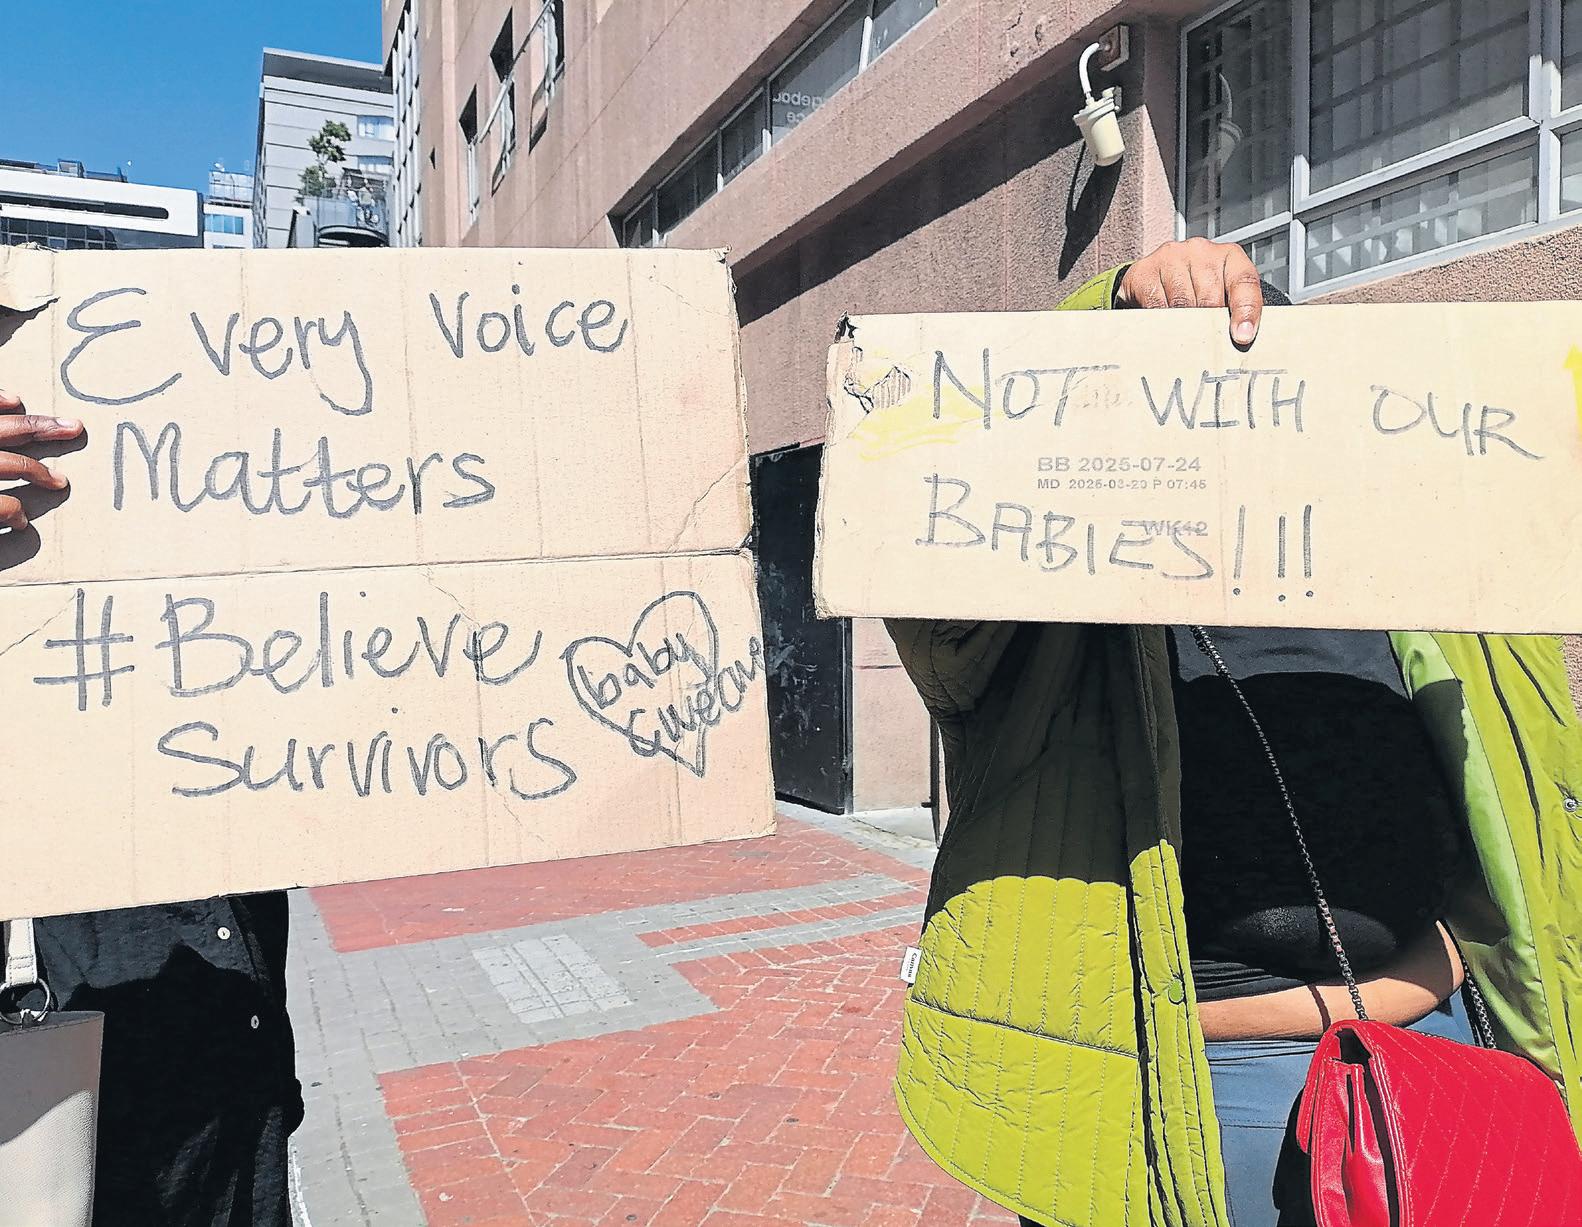 Every voice
Matters
#Believe
Survivors
baby
NOT WITH OUR
BABIES!!!
BB 2025-07-24
MD 2025-03-20 P 07:45
WK42